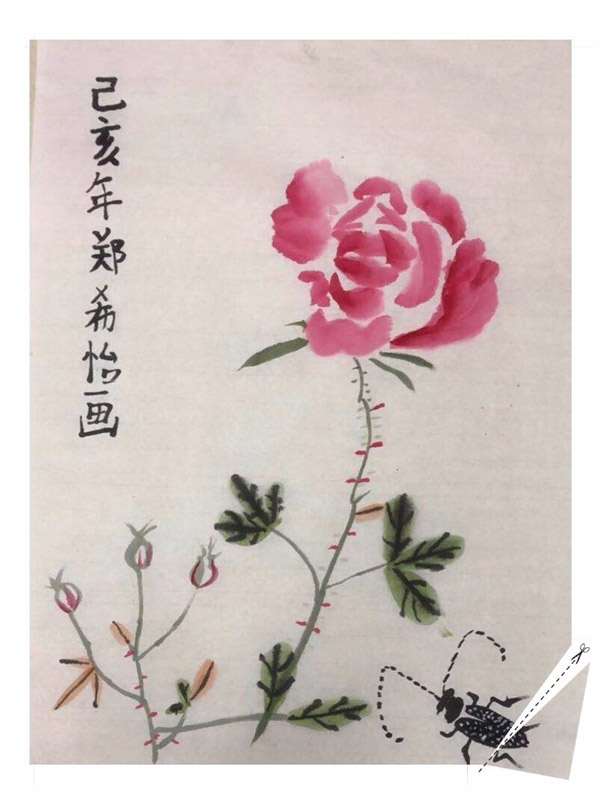 己亥年郑希怡画